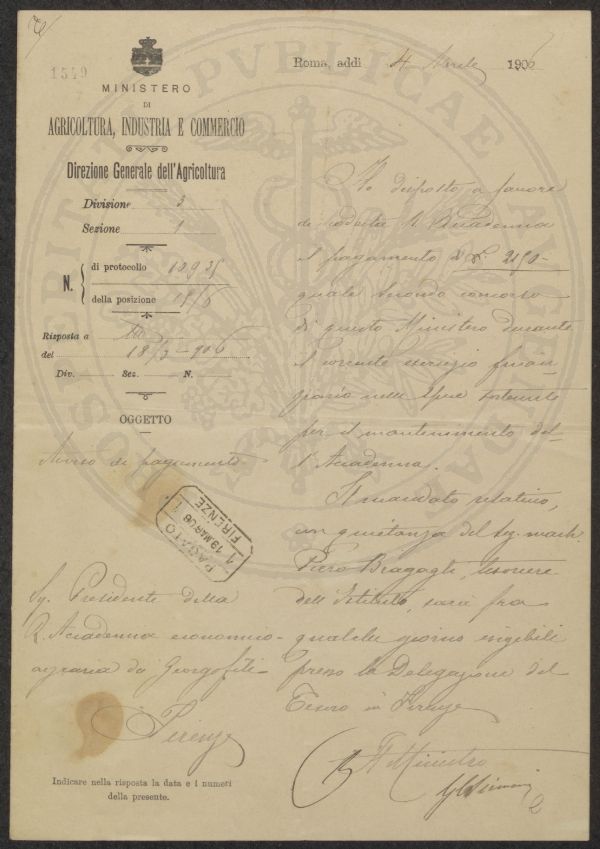 1549
MINISTERO
DI
AGRICOLTURA, INDUSTRIA E COMMERCIO
Direzione Generale dell'Agricoltura
Divisione 3
Sezione 1
N.
di protocollo 10925
della posizione 18/6
Risposta a
del 18/3-906
Div. Sez. N.
OGGETTO
Avviso di pagamento
PAGATO
19 MAR 06
FIRENZE
Sig. Presidente della
R. Accademia economico-
agraria dei Georgofili-
Firenze
Indicare nella risposta la data e i numeri
della presente.
Roma, addì 4 Aprile 1906
Ho disposto a favore
di codesta R. Accademia
il pagamento di L. 2150-
quale secondo concorso
di questo Ministero durante
il corrente esercizio finan-
ziario nelle spese sostenute
per il mantenimento del-
l'Accademia.
Il mandato relativo,
con quietanza del Sig. march.
Piero Bragagli, tesoriere
dell'Istituto, sarà fra
qualche giorno esigibile
presso la Delegazione del
Tesoro in Firenze
Il Ministro
2
PVBLICAE